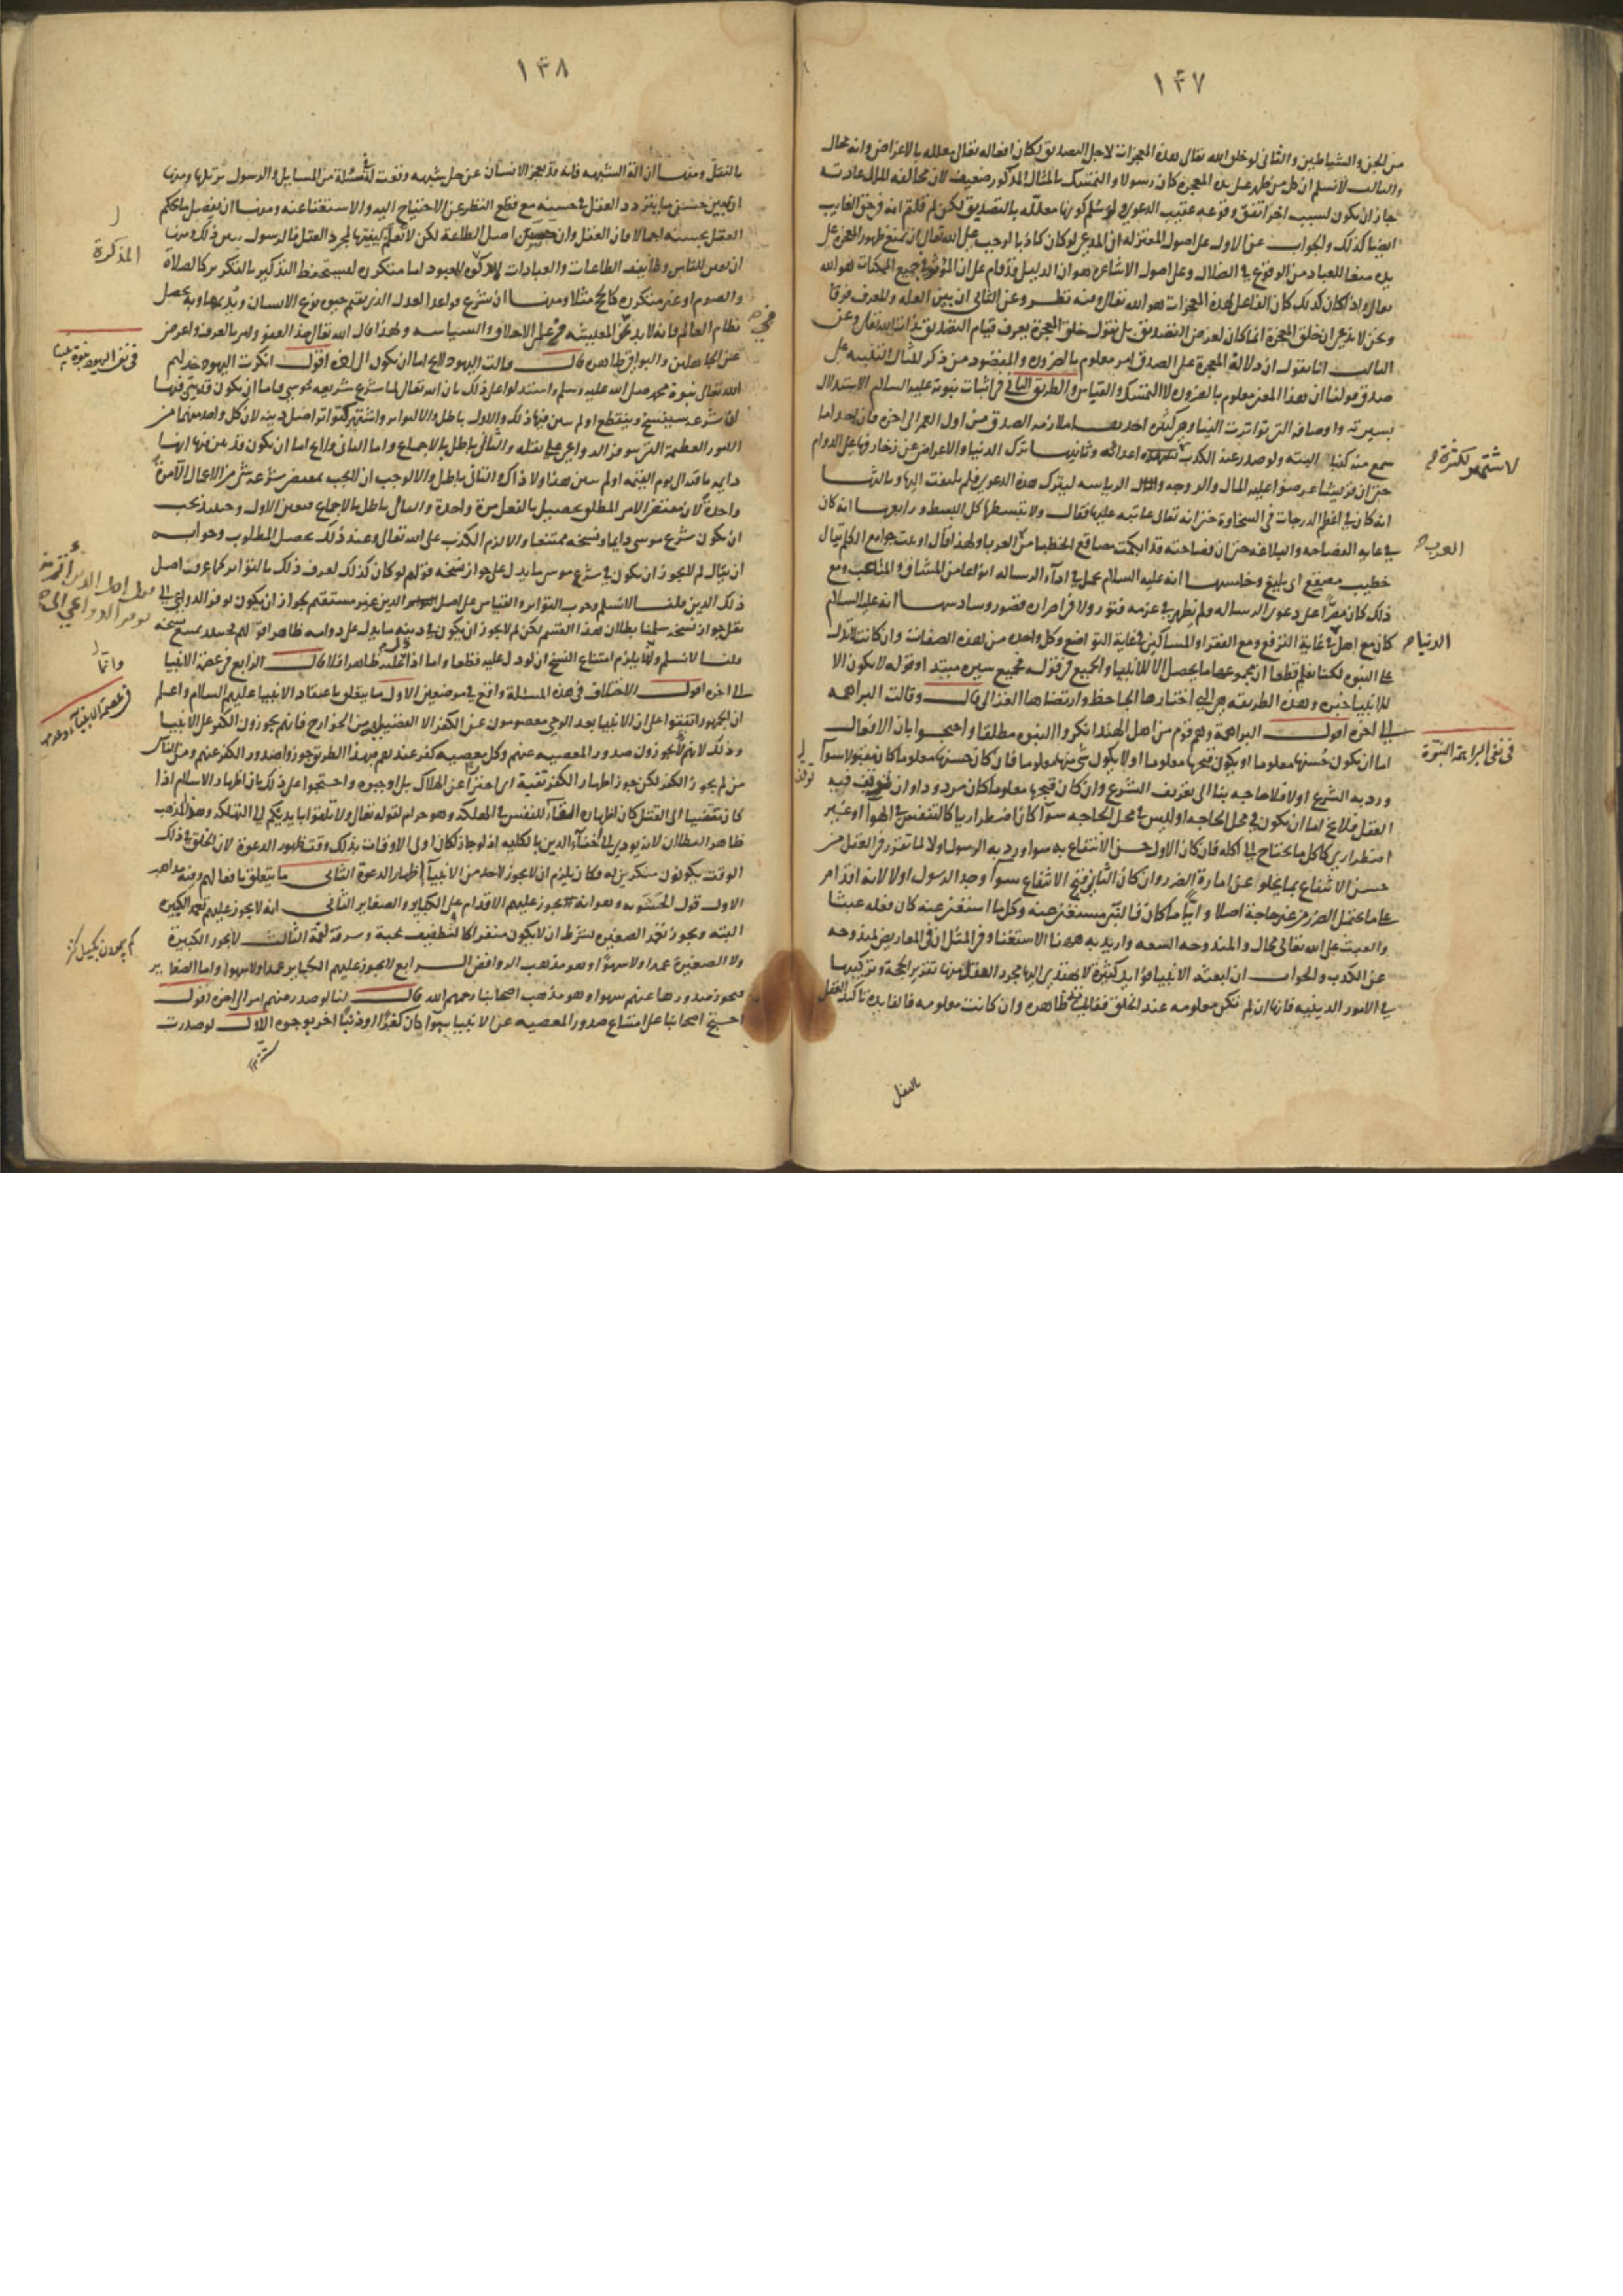 ١٤٧
من الجن والشياطين والثاني لو خلق الله تعالى هذه المعجزات لاجل التصديق لكان افعاله تعالى معللة بالاغراض وانه محال
والثالث لا نسلم ان كل من ظهر على يده المعجزة كان رسولا والتمسك بالمثال المذكور ضعيف لان مخالفة الملك عادته
جاز ان يكون لسبب اخر اتفق وقوعه عقيب الدعوى ولو سلم كونها معللة بالتصديق لكن لم قلتم انه في حق الغايب
ايضا كذلك والجواب عن الاول على اصول المعتزلة ان المدعي لو كان كاذبا لوجب على الله تعالى ان يمنع ظهور المعجزة على
يده منعا للعباد من الوقوع في الضلال وعلى اصول الاشاعرة هو ان الدليل قد قام على ان المؤثر في جميع الممكنات هو الله
تعالى واذا كان كذلك كان الفاعل لهذه المعجزات هو الله تعالى ومنه نظر وعن الثاني ان بين العلة والمعرف فرقا
ونحن لا ندعي ان خلق المعجزة انما كان لغرض التصديق بل نقول خلق المعجزة يعرف قيام التصديق بذات الله تعالى وعن
الثالث انا نقول ان دلالة المعجزة على الصدق امر معلوم بالضرورة والمقصود من ذكر المثال التنبيه على
صدق قولنا ان هذا المعنى معلوم بالضرورة لا التمسك والقياس والطريق الثاني في اثبات نبوته عليه السلام الاستدلال
بسيرته واوصافه التي تواترت الينا وهي كثيرة احدها ملازمة الصدق من اول العمر الى اخره فان احدا ما
سمع منه كذبا البته ولو صدر عنه الكذب اعدائه وثانيها ترك الدنيا والاعراض عن زخارفها على الدوام
حتى ان قريشا عرضوا عليه المال والزوجة والرياسة ليترك هذه الدعوى فلم يلتفت اليها وثالثها
انه كان في اعظم الدرجات في السخاوة حتى انه تعالى عاتبه عليها فقال ولا تبسطها كل البسط ورابعها انه كان
في غاية الفصاحة والبلاغة حتى ان فصاحته قد ابكمت مصاقع الخطباء من العرب ولهذا قال اوتيت جوامع الكلم يقال
خطيب مصقع اي بليغ وخامسها انه عليه السلام تحمل في اداء الرسالة انواعا من المشاق والمتاعب ومع
ذلك كان مصرا على دعوى الرسالة ولم يظهر في عزمه فتور ولا في اصراره قصور وسادسها انه عليه السلام
كان مع اهل في غاية الترفع ومع الفقراء والمساكين في غاية التواضع وكل واحد من هذه الصفات وان كانت لا تدل
على النبوة لكنا نعلم قطعا ان مجموعها ما يحصل الا للانبياء والجميع في قوله فجميع سيره مبتدا وقوله لا يكون الا
للانبياء خبره وهذه الطريقة هي التي اختارها الجاحظ وارتضاها الغزالي قال وقالت البراهمة
الى اخره اقول البراهمة وهم قوم من اهل الهند انكروا النبوة مطلقا واحتجوا بان الافعال
اما ان يكون حسنها معلوما او يكون قبحها معلوما او لا يكون شي منهما معلوما فان كان حسنها معلوما كان مقبولا سواء
ورد به الشرع او لا فلا حاجة بنا الى تعريف الشرع وان كان قبحها معلوما كان مردودا وان لم توقف فيه
العقل فلا يخ اما ان يكون في محل الحاجة او ليس في محل الحاجة سواء كان اضطراريا كالتنفس في الهواء او غير
اضطراري كاكل ما يحتاج الى اكله فان كان الاول حسن الانتفاع به سواء ورد به الرسول او لا لما تقرر في العقل من
حسن الانتفاع بما يخلو عن امارة الضرر وان كان الثاني قبح الانتفاع سواء وجد الرسول او لا لانه اقدام
على ما يحتمل الضرر من غير حاجة اصلا وايا ما كان فالنبي مستغنى عنه وكل ما استغنى عنه كان فعله عبثا
والعبث على الله تعالى محال والمندوحة السعة واريد به ههنا الاستغناء وفي المثل ان في المعاريض لمندوحة
عن الكذب والجواب ان لبعثة الانبياء فوائد كثيرة لا يهتدي اليها مجرد العقل منها تقرير الحجة وتركيبها
في الامور الدينية فانها ان لم تكن معلومة عند الخلق ففائدة ظاهرة وان كانت معلومة فالفائدة تاكيد العقل
بالنقل
لاشتهر لكثرة
العرب
الدنيا
في نفي البراهمة النبوة
١٤٨
بالنقل ومنها ازالة الشبهة فانه قد يعجز الانسان عن حل شبهة وقعت في مسئلة من المسايل والرسول يزيلها ومنها
ان يبين حسن ما يتردد العقل في حسنه مع قطع النظر عن الاحتياج اليه والاستغناء عنه ومنها ان يفصل ما يحكم
العقل بحسنه اجمالا فان العقل وان اصل الطاعة لكن لا نعلم كيفيتها بمجرد العقل فالرسول يبين ذلك ومنها
ان يعين للناس وظائف الطاعات والعبادات المعبود اما متكررة ليستحفظ التذكير بالتكرير كالصلاة
والصوم او غير متكررة كالحج مثلا ومنها ان يشرع قواعد العدل الذي يقيم حيوة نوع الانسان وبه يحصل
نظام العالم فانه لا بد من المعيشة من علم الاخلاق والسياسة ولهذا قال الله تعالى خذ العفو وامر بالعرف واعرض
عن الجاهلين والبواقي ظاهرة قال وقالت اليهود لا يخ اما ان يكون الى اخره اقول انكرت اليهود خذلهم
الله تعالى نبوة محمد صلى الله عليه وسلم واستدلوا على ذلك بان الله تعالى لما شرع شريعة موسى فاما ان يكون قد بين فيها
ان شرعه سينسخ وينقطع او لم يبين فيها ذلك والاول باطل والا لتواتر واشتهر كتواتر اصل دينه لان كل واحد منهما من
الامور العظيمة التي يتوفر الدواعي على نقله والتالي باطل بالاجماع واما الثاني فلا يخ اما ان يكون قد بين فيها انها
دايمة باقية الى يوم القيمة او لم يبين هذا ولا ذاك والثاني باطل والا لوجب ان لا يجب بمقتضى شرعه شي من الاعمال الا مرة
واحدة لان مقتضى الامر المطلق يحصل بالفعل مرة واحدة والتالي باطل بالاجماع فتعين الاول وحينئذ يجب
ان يكون شرع موسى دايما ونسخه ممتنعا والا لزم الكذب على الله تعالى وعند ذلك يحصل المطلوب وجوابه
ان يقال لم لا يجوز ان يكون في شرع موسى ما يدل على جواز نسخه قوله لو كان كذلك لعرف ذلك بالتواتر كما عرف اصل
ذلك الدين قلنا لا نسلم وجوب التواتر والقياس على اصل الدين غير مستقيم لجواز ان يكون توفر الدواعي الى
نقل جواز نسخه سلمنا بطلان هذا القسم لكن لم لا يجوز ان يكون في دينه ما يدل على دوامه ظاهرا قوله فحينئذ يمتنع نسخه
قلنا لا نسلم وانما يلزم امتناع النسخ ان لو دل عليه قطعا واما اذا ظاهرا فلا قال الرابع في عصمة الانبياء
الى اخره اقول الاختلاف في هذه المسئلة واقع في موضعين الاول ما يتعلق باعتقاد الانبياء عليهم السلام واعلم
ان الجمهور اتفقوا على ان الانبياء بعد الوحي معصومون عن الكفر الا الفضيلية من الخوارج فانهم يجوزون الكفر على الانبياء
وذلك لانهم يجوزون صدور المعصية عنهم وكل معصية كفر عندهم فبهذا الطريق جوزوا صدور الكفر عنهم ومن الناس
من لم يجوز الكفر لكن جوز اظهار الكفر تقية اي احترازا عن الهلاك بل اوجبوه واحتجوا على ذلك بان اظهار الاسلام اذا
كان مقتضيا الى القتل كان اظهاره القاء للنفس في المهلكة وهو حرام لقوله تعالى ولا تلقوا بايديكم الى التهلكة وهذا المذهب
ظاهر البطلان لانه يودي الى اخفاء الدين بالكلية اذ لو جاز لكان اولى الاوقات بذلك وقت ظهور الدعوة لان الخلق في ذلك
الوقت يكونون منكرين له فكان يلزم ان لا يجوز لاحد من الانبياء اظهار الدعوة الثاني ما يتعلق بافعالهم وفيه مذاهب
الاول قول الحشوية وهو انه يجوز عليهم الاقدام على الكباير والصغاير الثاني انه لا يجوز عليهم تعمد الكبيرة
البته ويجوز تعمد الصغيرة بشرط ان لا يكون منفرا كالتطفيف بحبة وسرقة لقمة الثالث لا يجوز الكبيرة
ولا الصغيرة عمدا ولا سهوا وهو مذهب الروافض الرابع لا يجوز عليهم الكباير عمدا ولا سهوا واما الصغاير
فيجوز صدورها عنهم سهوا وهو مذهب اصحابنا رحمهم الله قال لنا لو صدر عنهم امر الى اخره اقول
احتج اصحابنا على امتناع صدور المعصية عن الانبياء سواء كان كفرا او ذنبا اخر بوجوه الاول لو صدرت
المذكرة
في نفي اليهود نبوة نبينا
وانما
في عصمة الانبياء